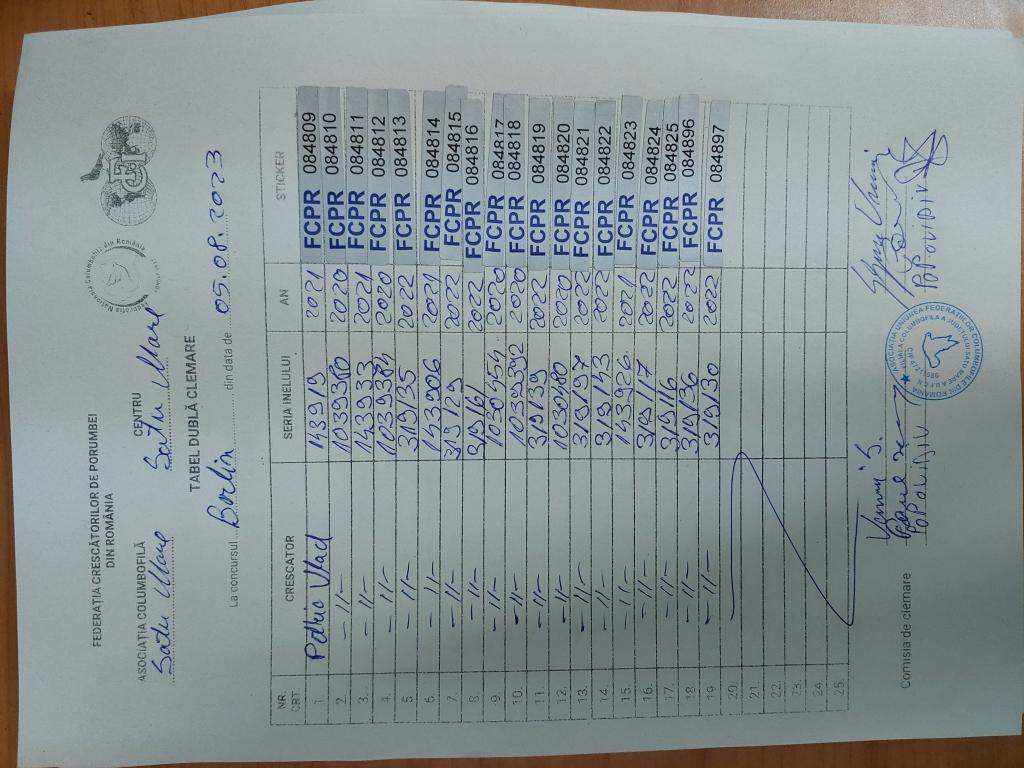 FEDERAȚIA CRESCĂTORILOR DE PORUMBEI
DIN ROMÂNIA
ASOCIAȚIA COLUMBOFILĂ CENTRU
Satu Mare Satu Mare
TABEL DUBLĂ CLEMARE
La concursul Berlin din data de 05.08.2023
NR. CRT. CRESCATOR SERIA INELULUI AN STICKER
1. Petric Vlad 143919 2021 FCPR 084809
2. -//- 1039380 2020 FCPR 084810
3. -//- 143933 2021 FCPR 084811
4. -//- 1039384 2020 FCPR 084812
5. -//- 319135 2022 FCPR 084813
6. -//- 143906 2021 FCPR 084814
7. -//- 319129 2022 FCPR 084815
8. -//- 319161 2022 FCPR 084816
9. -//- 1030454 2020 FCPR 084817
10. -//- 1039392 2020 FCPR 084818
11. -//- 319139 2022 FCPR 084819
12. -//- 1030480 2020 FCPR 084820
13. -//- 319197 2022 FCPR 084821
14. -//- 319143 2022 FCPR 084822
15. -//- 143926 2021 FCPR 084823
16. -//- 319117 2022 FCPR 084824
17. -//- 319116 2022 FCPR 084825
18. -//- 319136 2022 FCPR 084896
19. -//- 319130 2022 FCPR 084897
20.
21.
22.
23.
24.
25.
Comisia de clemare
POP OVIDIU